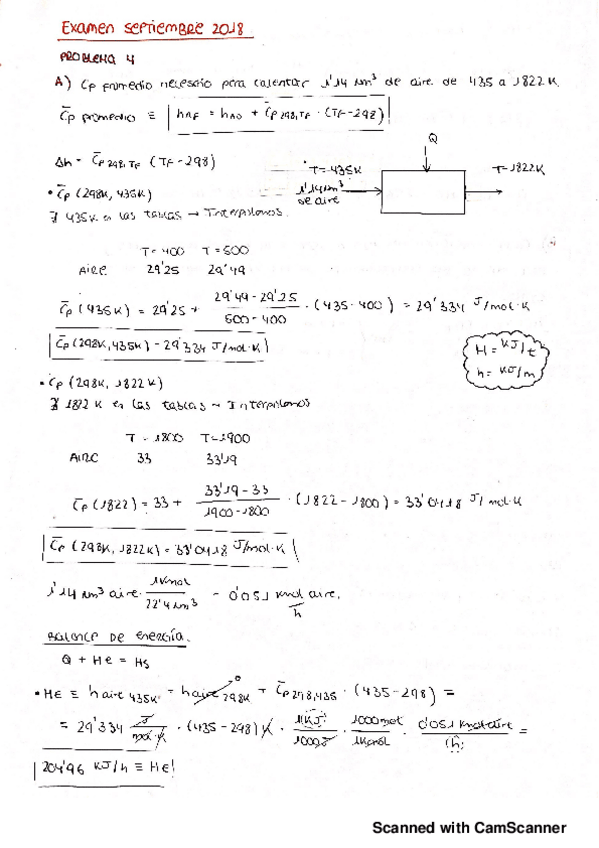 Examen septiembre 2018
PROBLEMA 4
A) Cp promedio necesario para calentar 1'14 Nm³ de aire de 435 a 1822 K
C̄p promedio ≡ hAF = hA0 + C̄p 298,TF · (TF-298)
Q
Δh = C̄p 298,TF (TF-298)
T=435K
T=1822K
1'14 Nm³
de aire
• C̄p (298K, 435K)
∄ 435K en las tablas → Interpolamos.
T=400 T=500
AIRE 29'25 29'49
C̄p (435K) = 29'25 + 29'49-29'25 / 500-400 · (435-400) = 29'334 J/mol·K
C̄p (298K, 435K) = 29'334 J/mol·K
H = KJ/t
h = KJ/m
• Cp (298K, 1822K)
∄ 1822 K en las tablas → Interpolamos
T=1800 T=1900
AIRE 33 33'19
C̄p (1822) = 33 + 33'19-33 / 1900-1800 · (1822-1800) = 33'0418 J/mol·K
C̄p (298K, 1822K) = 33'0418 J/mol·K
1'14 Nm³ aire · 1Kmol / 22'4 Nm³ = 0'051 kmol aire / h
Balance de energía.
Q + He = Hs
• HE ≡ h aire 435K = h aire 298K 0 + C̄p 298,435 · (435-298) =
= 29'334 J / mol·K · (435-298) K · 1KJ / 1000J · 1000mol / 1Kmol · 0'051 kmol aire / h =
204'96 KJ/h ≡ HE
Scanned with CamScanner